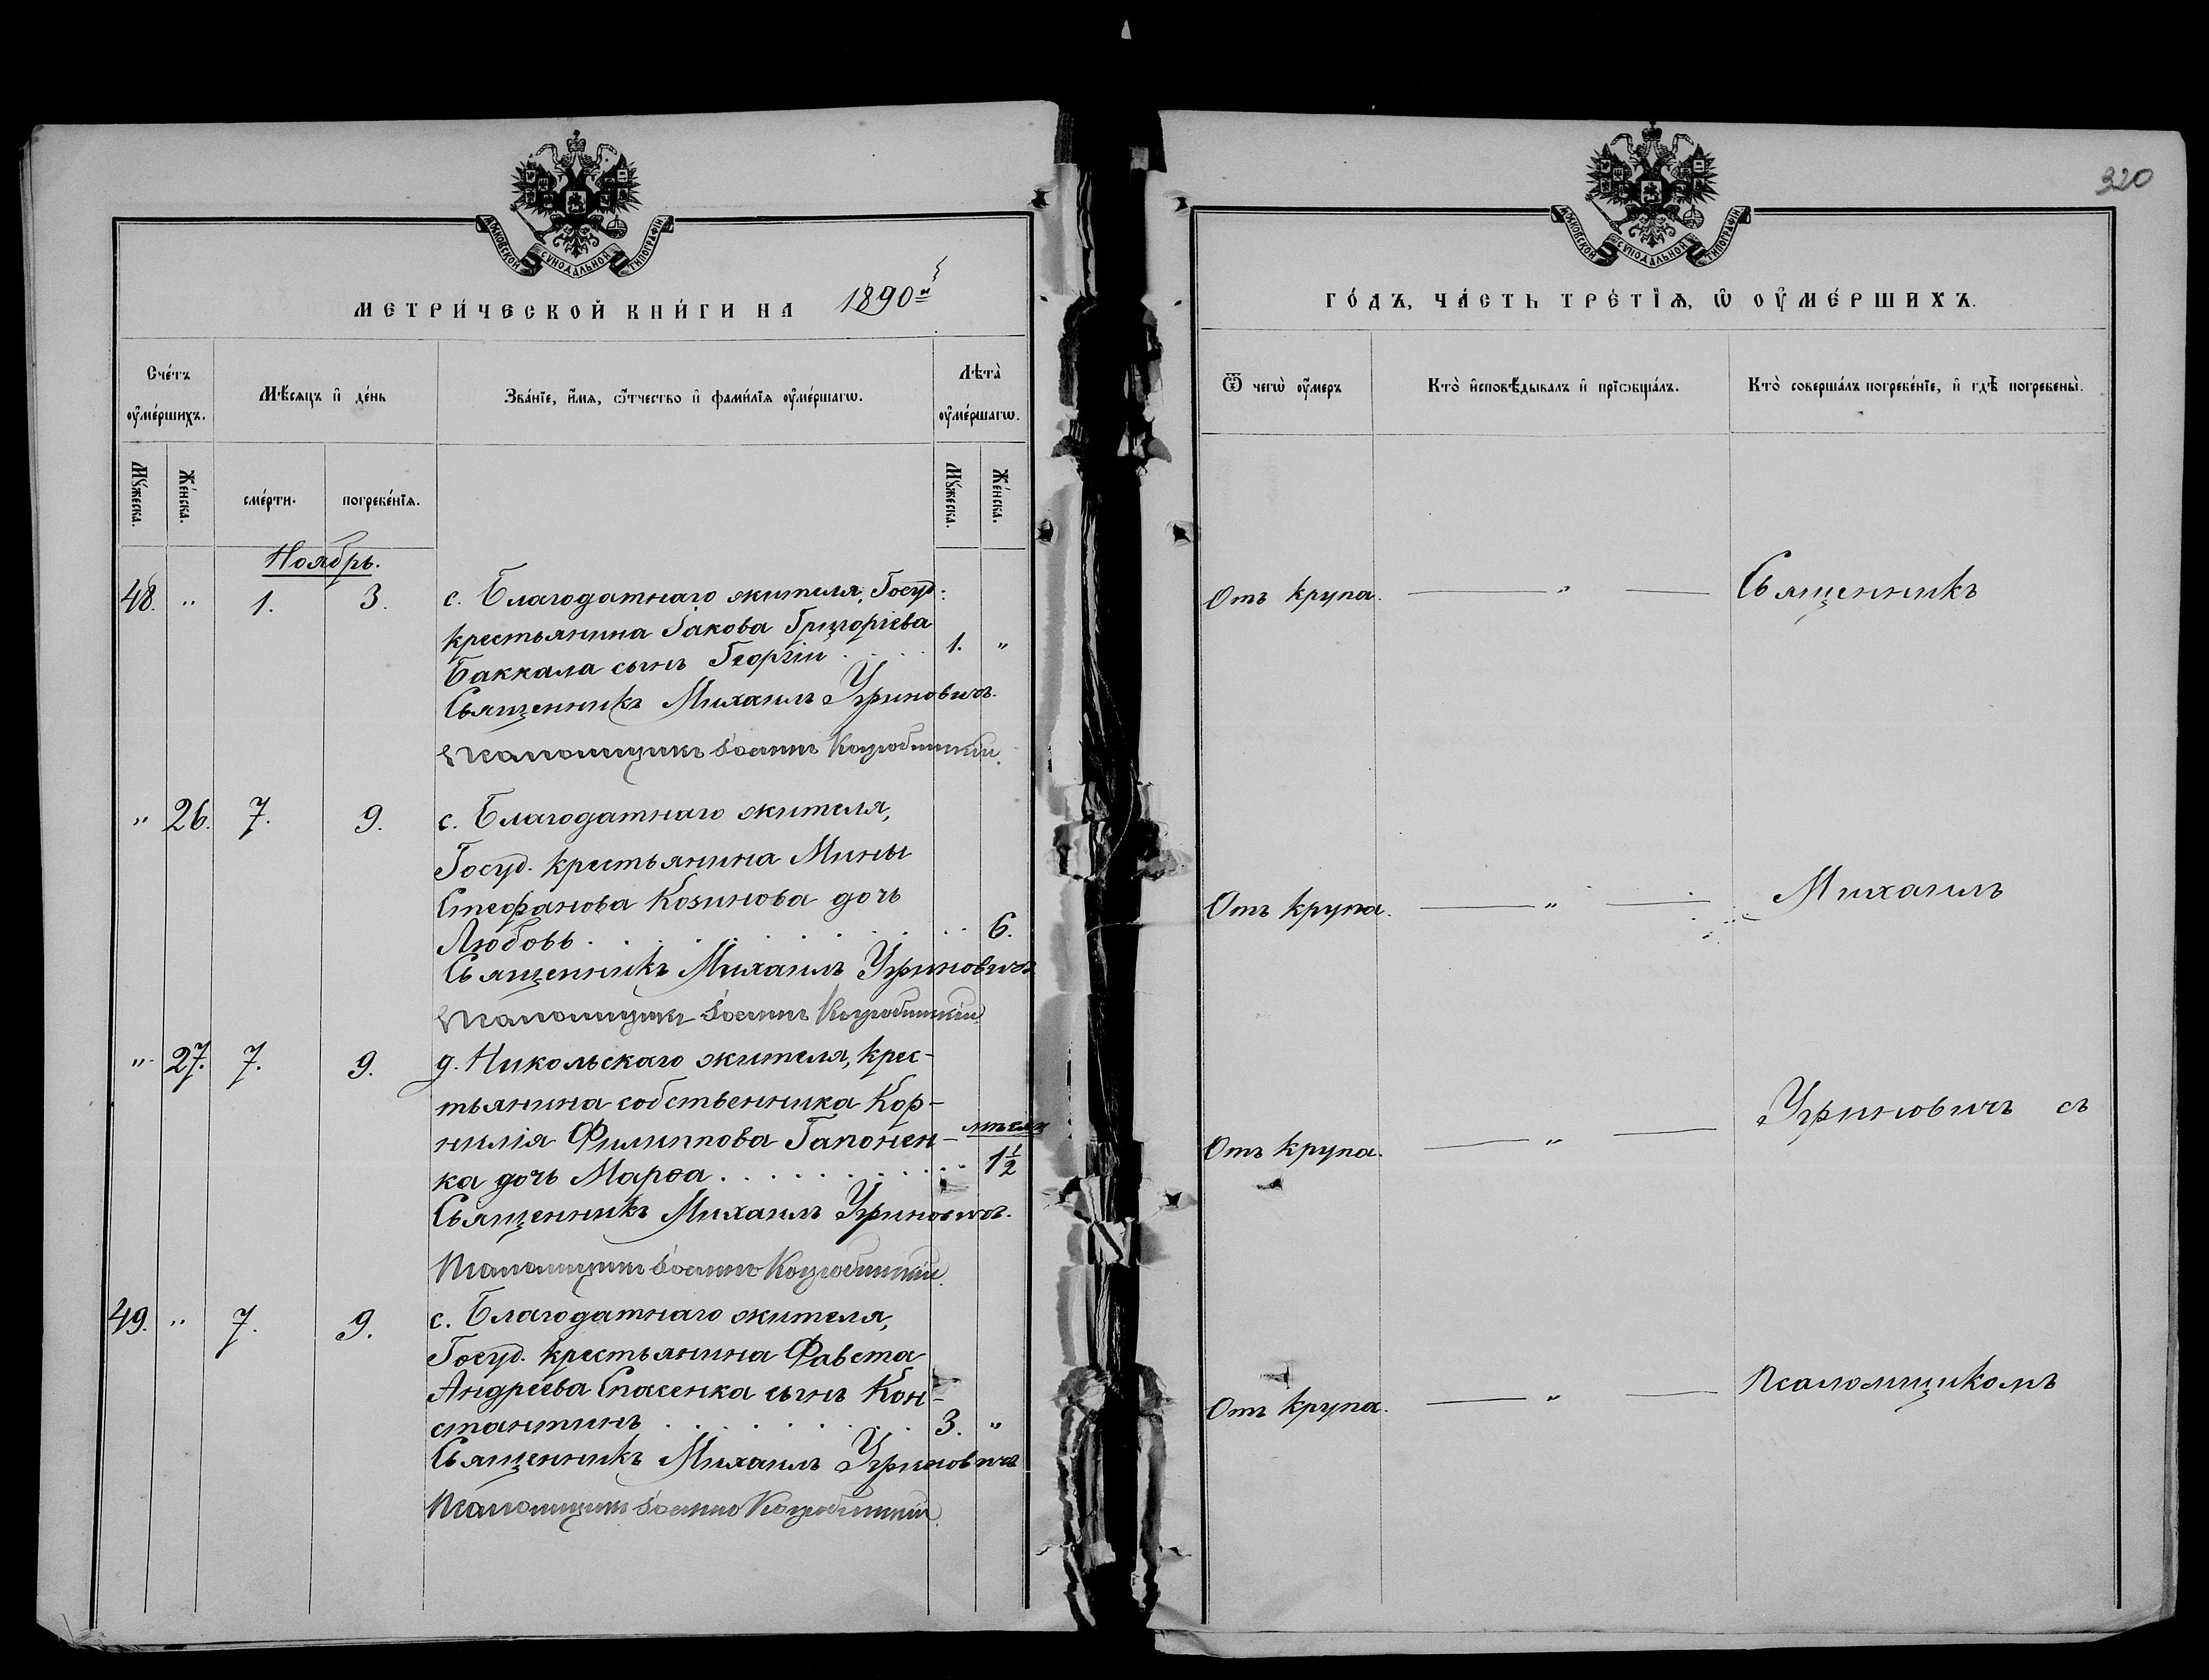 МОСКОВСКОЙ СѴНОДАЛЬНОЙ ТИПОГРАФІИ
МЕТРИ́ЧЕСКОЙ КНИ́ГИ НА 1890й
Сче́тъ ᲂу҆ме́ршихъ.
Мѣ́сяцъ и҆ де́нь
Зва́нїе, и҆́мѧ, ѻ҆́тчество и҆ фами́лїѧ ᲂу҆ме́ршагѡ.
Лѣта̀ ᲂу҆ме́ршагѡ.
Мꙋ́жеска.
Же́нска.
сме́рти.
погребе́нїѧ.
Мꙋ́жеска.
Же́нска.
Ноябрь.
48. " 1. 3. с. Благодатнаго жителя, Госуд:
крестьянина Іакова Григоріева
Баккала сынъ Георгій . . . . 1. "
Священникъ Михаилъ Угриновичъ.
Псаломщикъ Іоаннъ Коцюбинскій.
" 26. 7. 9. с. Благодатнаго жителя,
Госуд. крестьянина Мины
Стефанова Козинова дочь
Любовь . . . . . . . . . . 6.
Священникъ Михаилъ Угриновичъ
Псаломщикъ Іоаннъ Коцюбинскій.
" 27. 7. 9. д. Никольскаго жителя, крес-
тьянина собственника Кор-
нилія Филиппова Гапонен-
ка дочь Марѳа . . . . . . . . . 1½
Священникъ Михаилъ Угриновичъ.
Псаломщикъ Іоаннъ Коцюбинскій.
49. " 7. 9. с. Благодатнаго жителя,
Госуд. крестьянина Фавста
Андреева Спасенка сынъ Кон-
стантинъ . . . . . . . . 3. "
Священникъ Михаилъ Угриновичъ
Псаломщикъ Іоаннъ Коцюбинскій.
320
МОСКОВСКОЙ СѴНОДАЛЬНОЙ ТИПОГРАФІИ
ГО́ДЪ, ЧА́СТЬ ТРЕ́ТЇѦ, Ѡ҆ ОУ҆МЕ́РШИХЪ.
Ѿ чегѡ̀ ᲂу҆́меръ
Кто̀ и҆сповѣ́дывалъ и҆ прїѡбща́лъ.
Кто̀ соверша́лъ погребе́нїе, и҆ гдѣ̀ погребены̀.
Отъ крупа. — " — Священникъ
Отъ крупа. — " — Михаилъ
Отъ крупа. — " — Угриновичъ съ
Отъ крупа. — " — псаломщикомъ